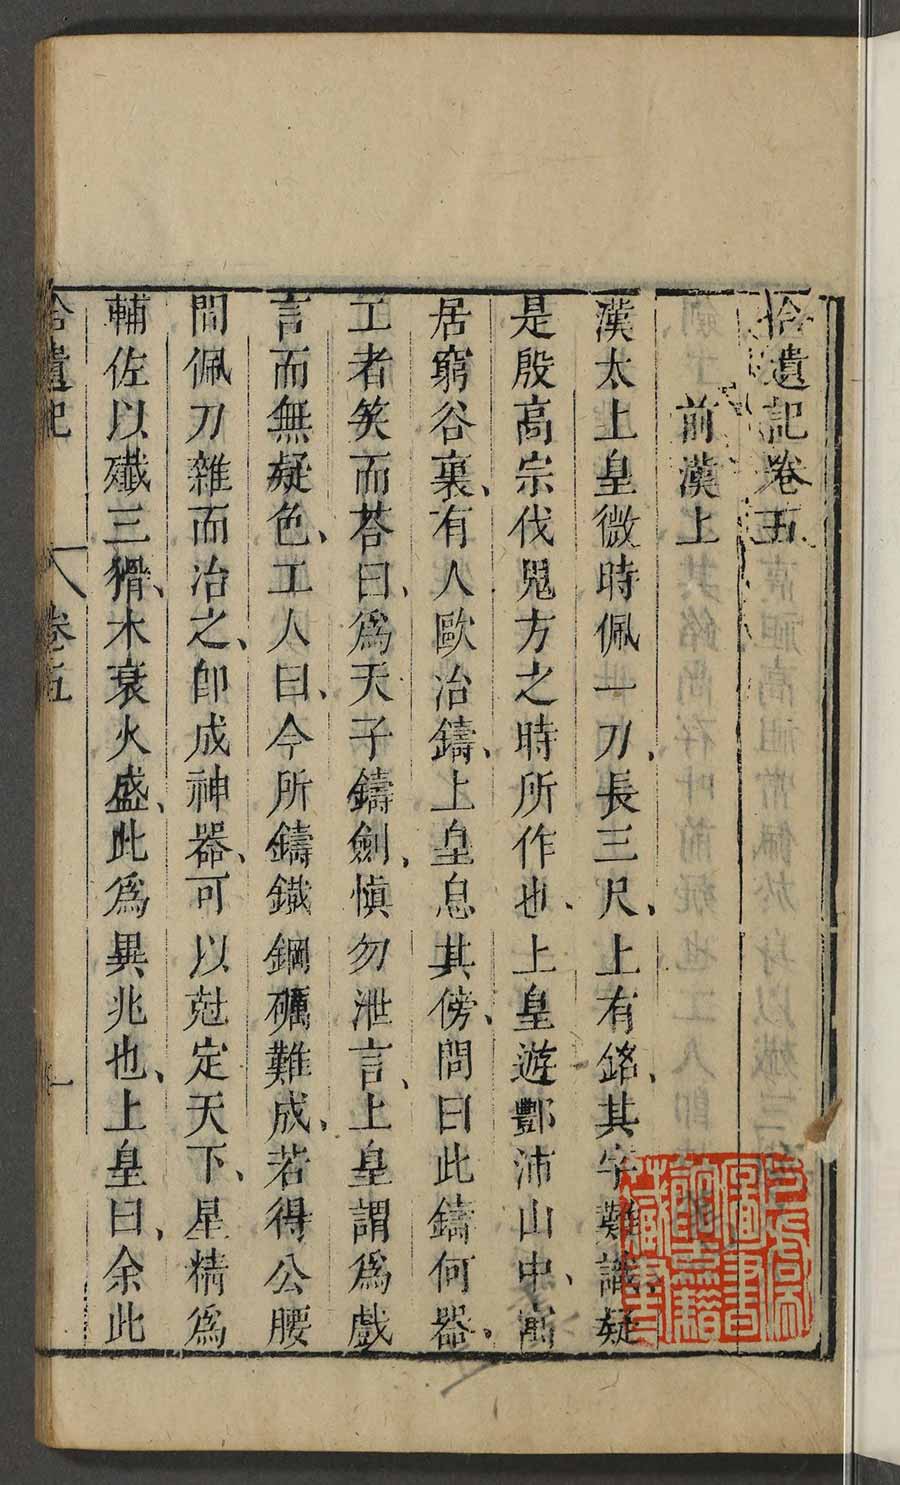 拾遺記卷五
前漢上
漢太上皇微時佩一刀、長三尺、上有銘、其字難識、疑
是殷高宗伐鬼方之時所作也、上皇遊酆沛山中、寓
居窮谷裏、有人歐冶鑄、上皇息其傍、問曰此鑄何器、
工者笑而荅曰、爲天子鑄劍、慎勿泄言、上皇謂爲戲
言而無疑色、工人曰、今所鑄鐵鋼礪難成、若得公腰
間佩刀雜而冶之、卽成神器、可以尅定天下、星精爲
輔佐以殲三猾、木衰火盛、此爲異兆也、上皇曰、余此
拾遺記 卷五 一